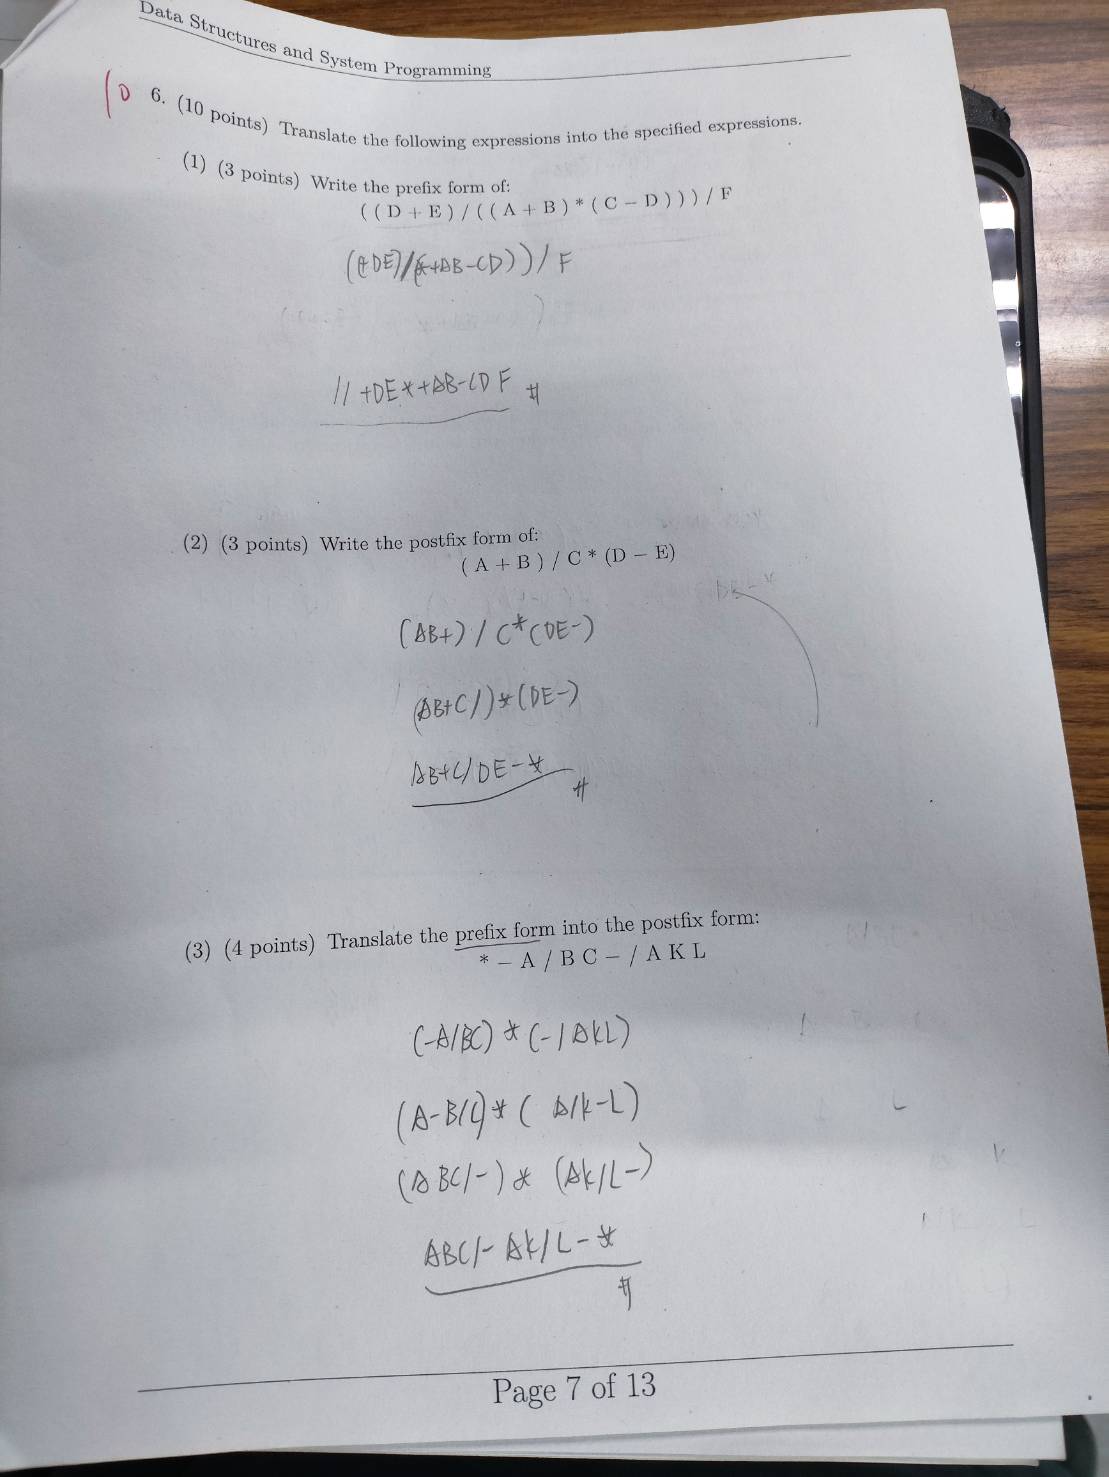 Data Structures and System Programming
10 6. (10 points) Translate the following expressions into the specified expressions.
(1) (3 points) Write the prefix form of:
( ( D + E ) / ( ( A + B ) * ( C − D ) ) ) / F
(+DE)/(*+AB-CD))/F
//+DE*+AB-CDF #
(2) (3 points) Write the postfix form of:
( A + B ) / C * (D − E)
(AB+)/C*(DE-)
(AB+C/)*(DE-)
AB+C/DE-* #
(3) (4 points) Translate the prefix form into the postfix form:
* − A / B C − / A K L
(-A/BC)*(-/AKL)
(A-B/C)*( A/K-L)
(ABC/-)*(AK/L-)
ABC/-AK/L-*
#
Page 7 of 13